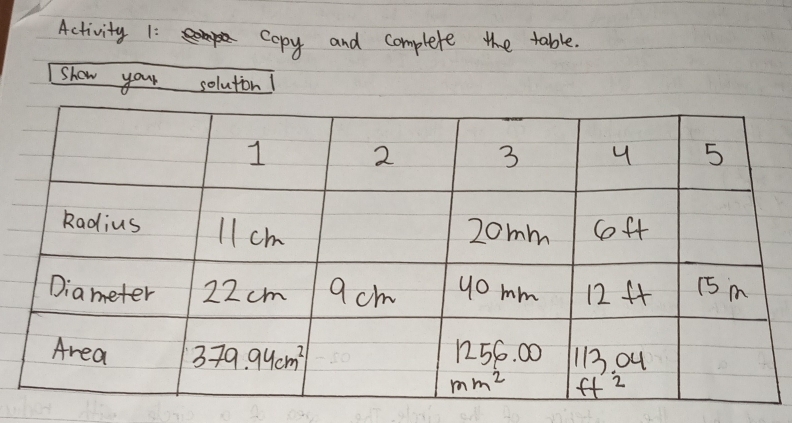 Activity 1: Copy and complete the table.
Show your solution!
1 2 3 4 5
Radius 11 cm 20mm 6 ft
Diameter 22 cm 9 cm 40 mm 12 ft 15 m
Area 379.94cm² 1256.00 113.04
mm² ft²